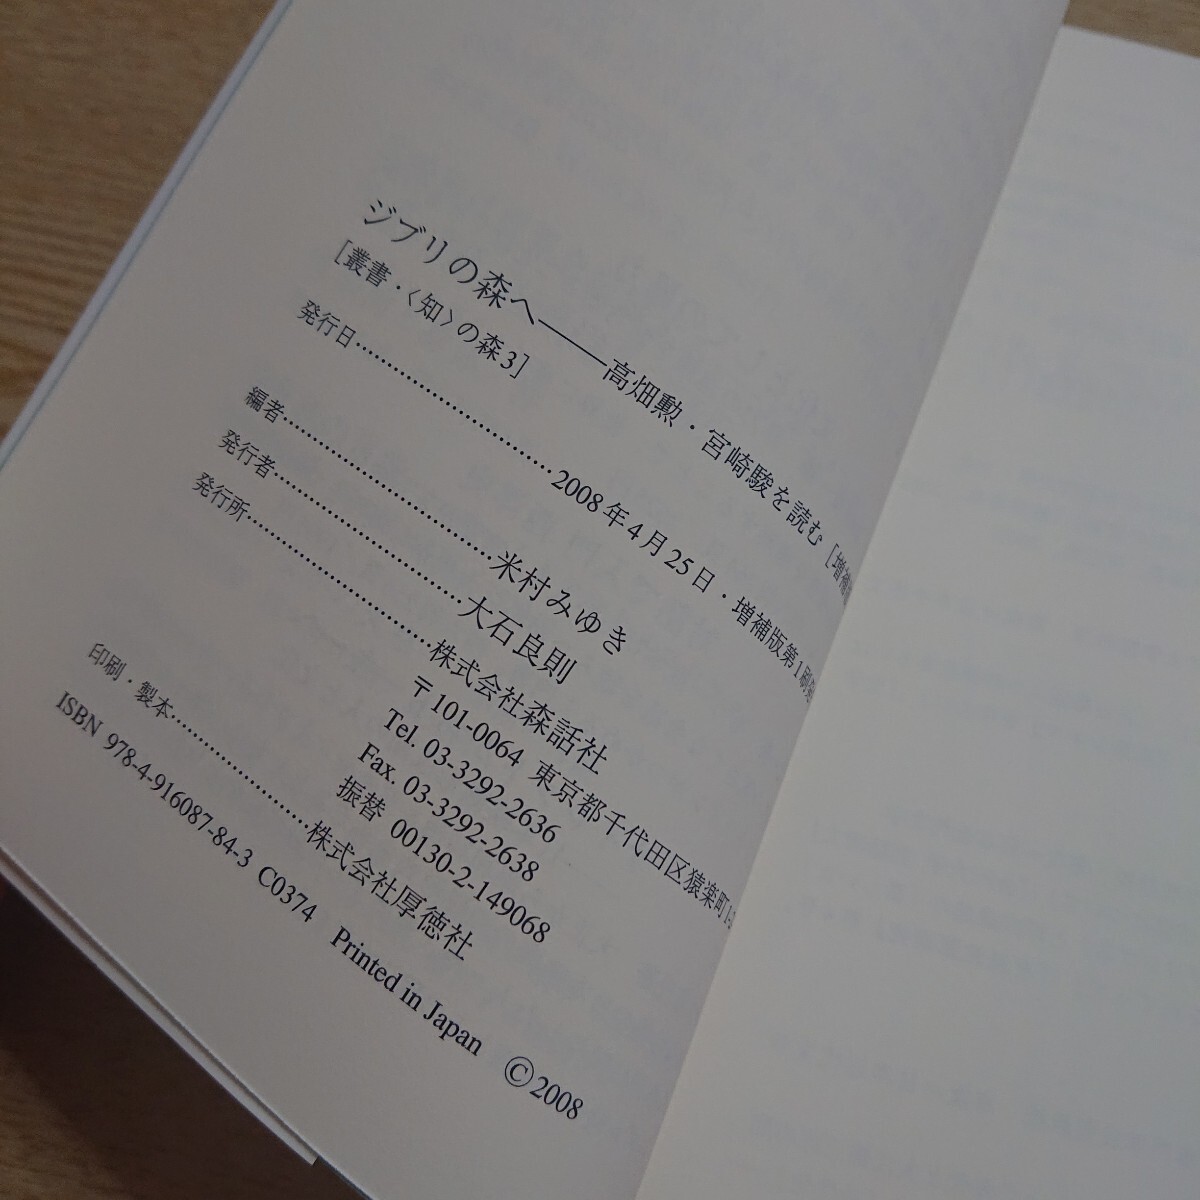 ジブリの森へ――高畑勲・宮崎駿を読む［増補
［叢書・〈知〉の森3］
発行日……………………2008年4月25日・増補版第1刷
編者……………………米村みゆき
発行者……………………大石良則
発行所……………………株式会社森話社
〒101-0064 東京都千代田区猿楽町1-
Tel. 03-3292-2636
Fax. 03-3292-2638
振替 00130-2-149068
印刷・製本……………………株式会社厚徳社
ISBN 978-4-916087-84-3 C0374 Printed in Japan ©2008